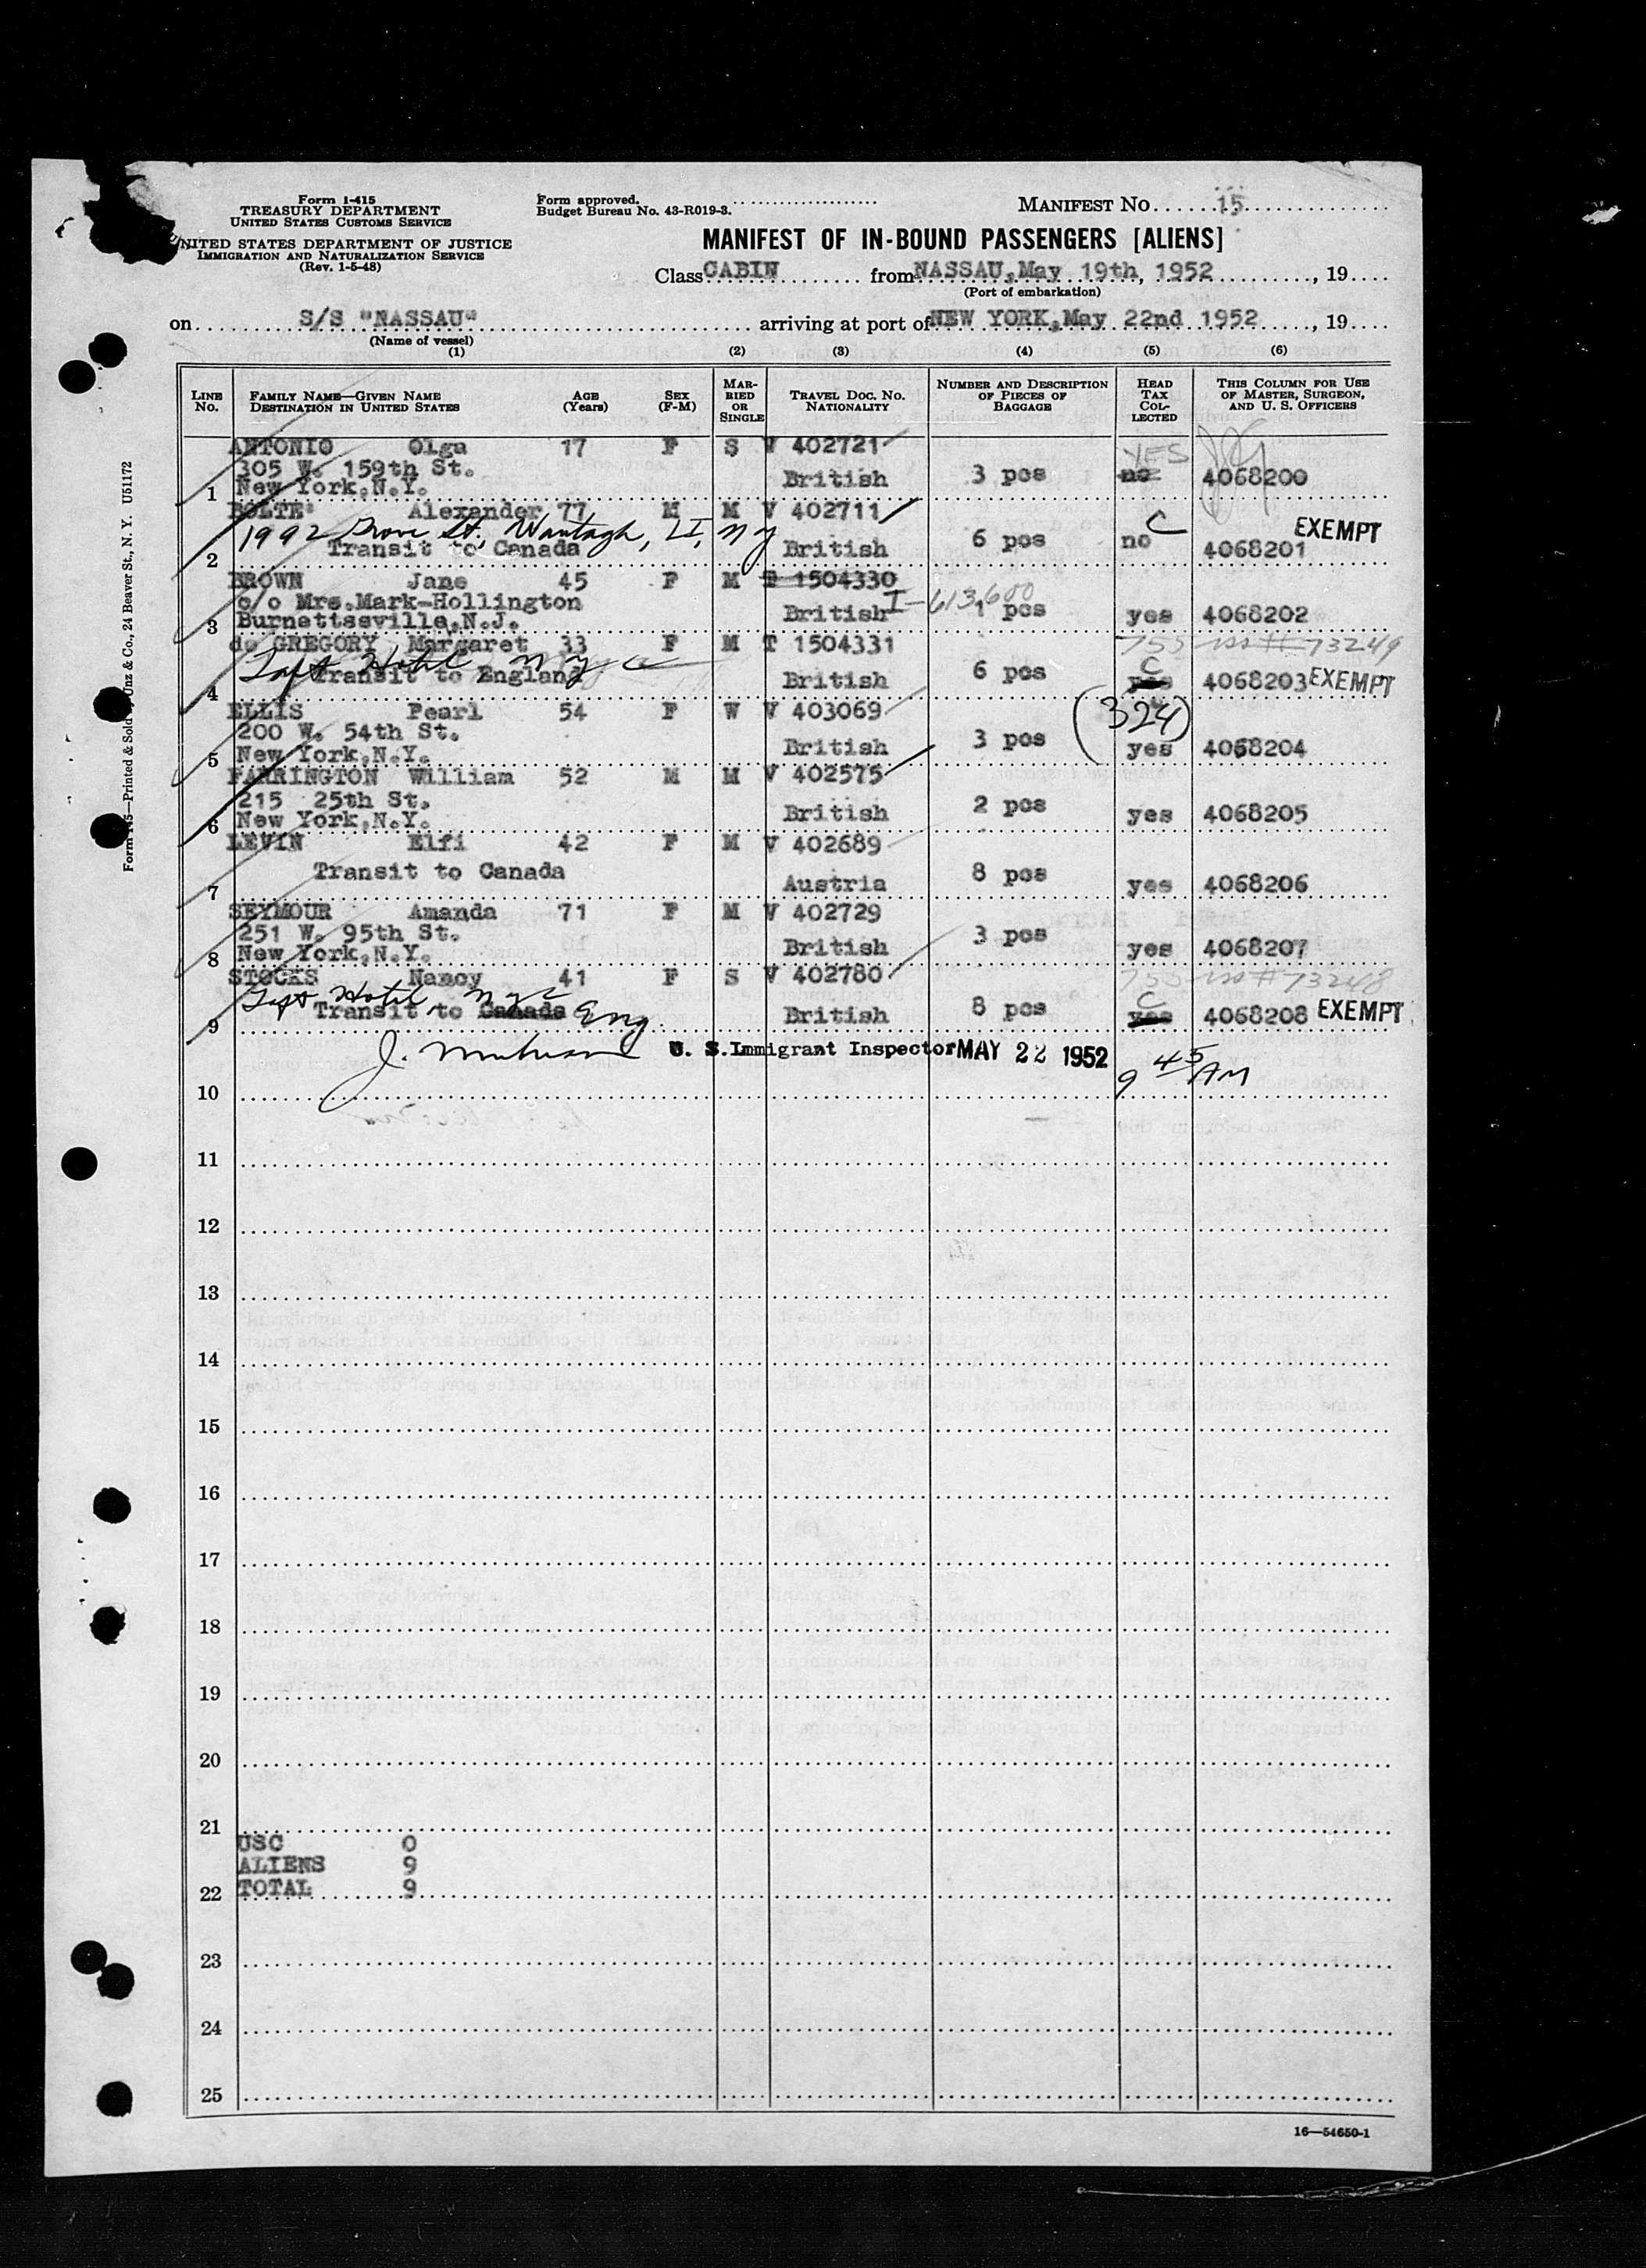 Form I-415
TREASURY DEPARTMENT
UNITED STATES CUSTOMS SERVICE
UNITED STATES DEPARTMENT OF JUSTICE
IMMIGRATION AND NATURALIZATION SERVICE
(Rev. 1-5-48)
Form approved.
Budget Bureau No. 43-R019-3.
MANIFEST NO. 15
MANIFEST OF IN-BOUND PASSENGERS [ALIENS]
Class CABIN from NASSAU, May 19th, 1952, 19
(Port of embarkation)
on S/S "NASSAU" arriving at port of NEW YORK, May 22nd 1952, 19
(Name of vessel)
(1) (2) (3) (4) (5) (6)
LINE No. FAMILY NAME—GIVEN NAME DESTINATION IN UNITED STATES AGE (Years) SEX (F-M) MARRIED OR SINGLE TRAVEL DOC. NO. NATIONALITY NUMBER AND DESCRIPTION OF PIECES OF BAGGAGE HEAD TAX COLLECTED THIS COLUMN FOR USE OF MASTER, SURGEON, AND U. S. OFFICERS
ANTONIO Olga 17 F S V 402721
305 W. 159th St. YES
1 New York,N.Y. British 3 pcs no 4068200
BOLTE Alexander 77 M M V 402711
1992 Grove St, Wantagh, LI, NY C EXEMPT
2 Transit to Canada British 6 pcs no 4068201
BROWN Jane 45 F M T 1504330
c/o Mrs.Mark-Hollington I-613,600
3 Burnettsville,N.J. British 1 pcs yes 4068202
de GREGORY Margaret 33 F M T 1504331 73249
Taft Hotel NYC C
4 Transit to England British 6 pcs yes 4068203 EXEMPT
ELLIS Pearl 54 F W V 403069 (324)
200 W. 54th St.
5 New York,N.Y. British 3 pcs yes 4068204
FARRINGTON William 52 M M V 402575
215 25th St.
6 New York,N.Y. British 2 pcs yes 4068205
LEVIN Elfi 42 F M V 402689
7 Transit to Canada Austria 8 pcs yes 4068206
SEYMOUR Amanda 71 F M V 402729
251 W. 95th St.
8 New York,N.Y. British 3 pcs yes 4068207
STOCKS Nancy 41 F S V 402780 73248
Taft Hotel NYC C
9 Transit to Canada Eng. British 8 pcs yes 4068208 EXEMPT
U. S. Immigrant Inspector MAY 22 1952 9 45 AM
10
11
12
13
14
15
16
17
18
19
20
21
USC 0
ALIENS 9
22 TOTAL 9
23
24
25
16—54650-1
Unz & Co., 24 Beaver St., N. Y. U51172